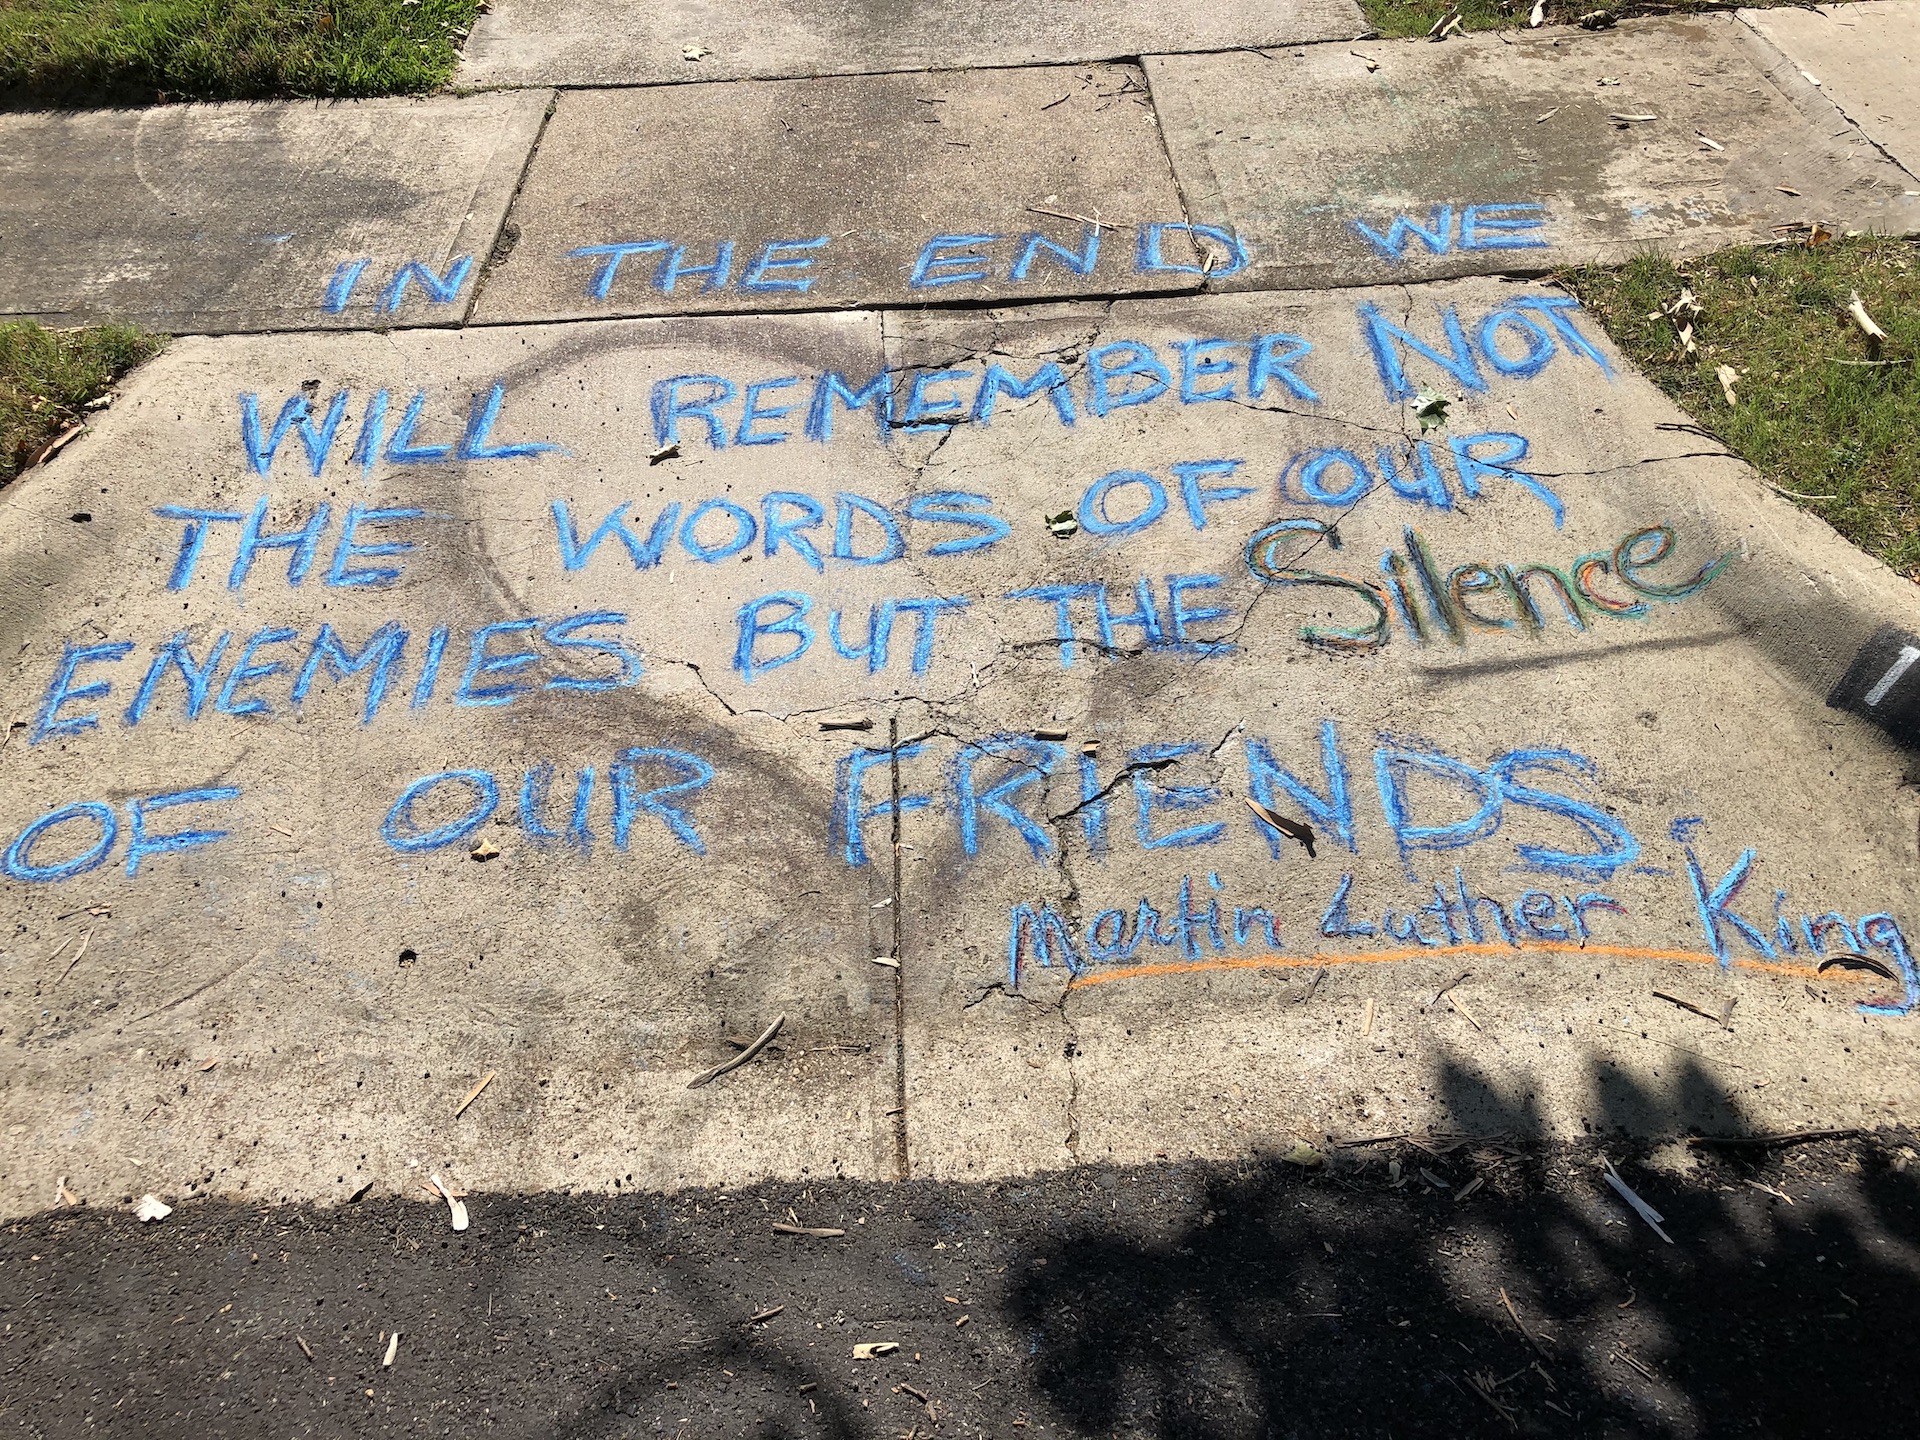 IN THE END WE
WILL REMEMBER NOT
THE WORDS OF OUR
ENEMIES BUT THE Silence
OF OUR FRIENDS.
Martin Luther King